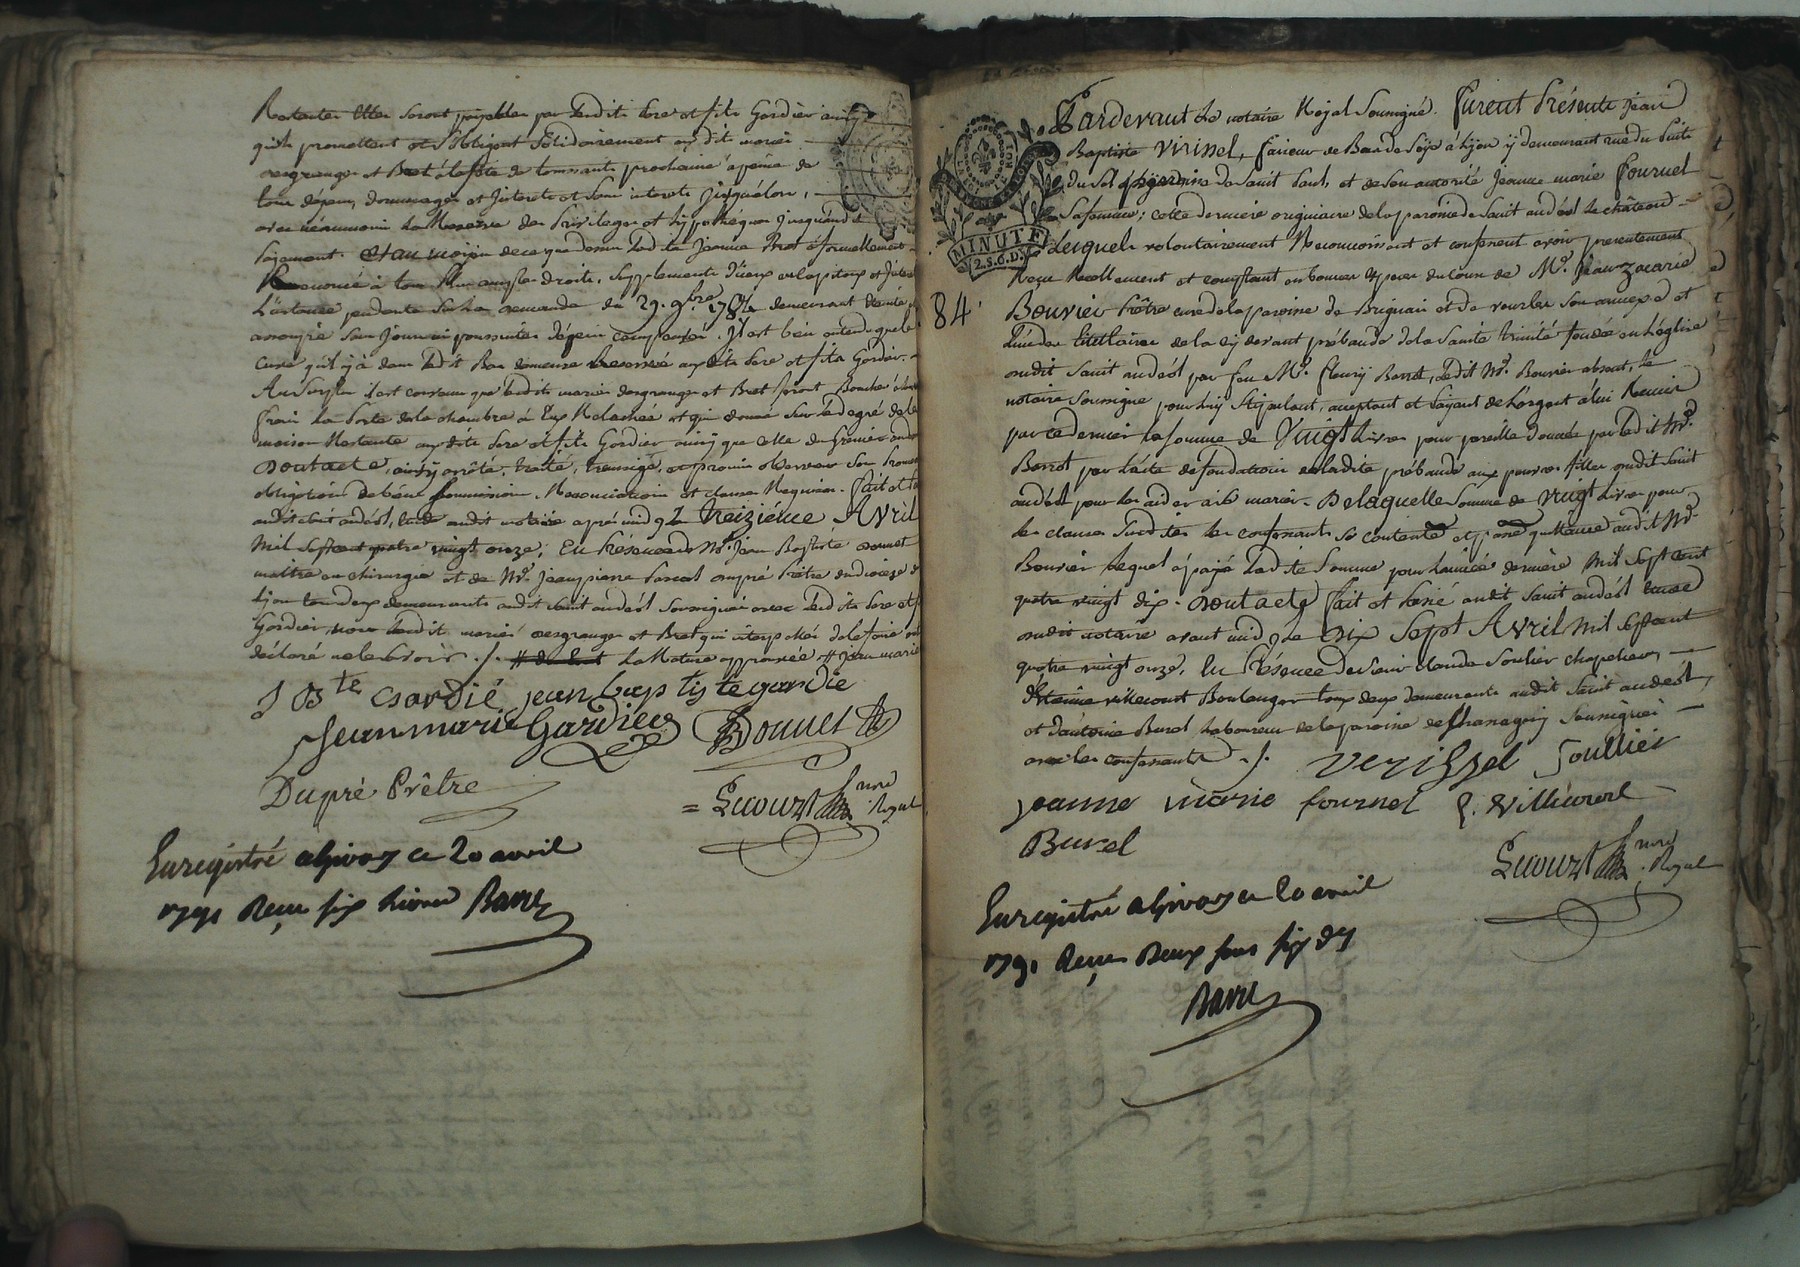 Restantes elles seront payables par lesdits Pere et fils Gordier ainsy
qu'ils promettent et s'obligent solidairement audits mariés
desgranges et Bret à la fête de toussaints prochaine à peine de
tous dépens, dommages et interets et sans interets jusqu'alors,
avec néanmoins la Reserve des Privileges et hypotheques jusqu'audit
payement. Et au moyen de ce que dessus lad. ite Jeanne Bret a formellement
Renoncé à tous
L'instance pendante sur la demande du 29. 9bre 1784 demeurant éteinte et
assoupie sans jour ni poursuites dépens compensés. Il est bien entendu que la
Cuve qu'il y a dans ledit Bas demeure reservée auxdits Pere et fils Gordier.
Au surplus il est convenu que lesdits mariés desgranges et Bret feront Boucher à leurs
frais la Porte de la chambre à Eux Relachée et qui donne sur le degré de la
maison Restante auxdits Pere et fils Gordier ainsy que celle du Grenier
Dont acte, ainsy arrêté, traité, transigé, et promis observer sous
obligation de biens soumissions, Renonciations et clauses Requises. fait et
audit saint andéol, Etude audit notaire après midy le treizième Avril
mil sept cent quatre vingt onze; En Présence de Mr. jean Baptiste Donnet
maître en chirurgie et de Mr. Jean pierre Pascal dupré Prêtre du diocese de
Lyon tous deux demeurants audit saint andéol soussignés avec lesdits Pere et fils
Gordier, non lesdits mariés desgranges et Bret qui interpellés de le faire ont
déclaré ne le savoir ./. la Rature approuvée # jean marie
J B te Gardié jean baptiste gardie
Jean marie Gardier Donnet
Dupré Prêtre
= Lecourt nre Royal
Enregistré a Givors ce 20 avril
1791 Reçu six Livres Barre
Pardevant Le notaire Royal soussigné. Furent Présents jean
Baptiste Virissel, faiseur de Bas de soye à Lyon y demeurant rue du Puits
du Sel paroisse de Saint Paul, et de son autorité Jeanne marie Fournel
sa femme; cette derniere originaire de la paroisse de Saint andéol le château
Lesquels volontairement Reconnoissent et confessent avoir presentement
Reçu Reellement et comptant en bonnes especes du cours de Mr. Jean Zacarie
84
Bouvier Prêtre curé de la paroisse de Brignais et de vourles son annexe et
titullaire de la cy devant prébande de la Sainte trinité fondée en L'église
audit saint andéol par feu Mr. fleury Berrot, ledit Mr. Bouvier absent, le
notaire soussigné pour luy stipulant, acceptant et payant de L'argent à lui Remis
par ce dernier la somme de Vingt Livres pour pareille donnée par ledit Mr.
Berrot par L'acte de fondation de ladite prébande aux pauvres filles audit saint
andéol pour les aider à se marier. De laquelle somme de vingt Livres pour
les causes susdites les confessants se contentent et en ont quittance audit Mr.
Bouvier lequel a payé ladite somme pour L'année derniere mil sept cent
quatre vingt dix. Dont acte fait et Passé audit Saint andéol Etude
audit notaire avant midy Le Dix Sept Avril mil sept cent
quatre vingt onze, En Présence de Sieur claude Soulier chapelier,
Etienne villecourt Boulanger tous deux demeurants audit Saint andéol,
et d'antoine Burel Laboureur de la paroisse de Chassagny soussignés
avec les confessants ./. Verissel Soullier
jeanne marie fournel E. Villecourt
Burel
Lecourt nre Royal
Enregistré a Givors ce 20 avril
1791 Reçu Deux sous six drs
Barre
MINUTE
2.S.6.D.